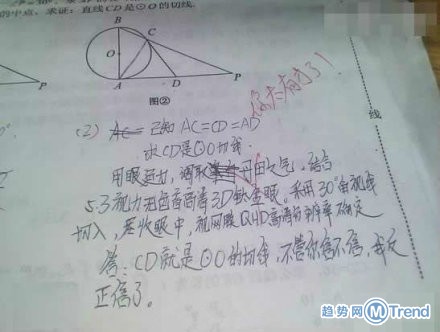 的中点，求证：直线CD是⊙O的切线.
B
C
O
A
D
P
P
图②
你太有才了！
线
(2) 已知 AC=CD=AD
求CD是⊙O切线.
用眼逼出，调取 丹田之气，结合
5.3视力 3D钛金眼，采用30°斜视线
切入，聚收眼中，视网膜QHD高清分辨率确定
答：CD就是⊙O的切线，不管你信不信，我反
正信了。
趋势网 M Trend